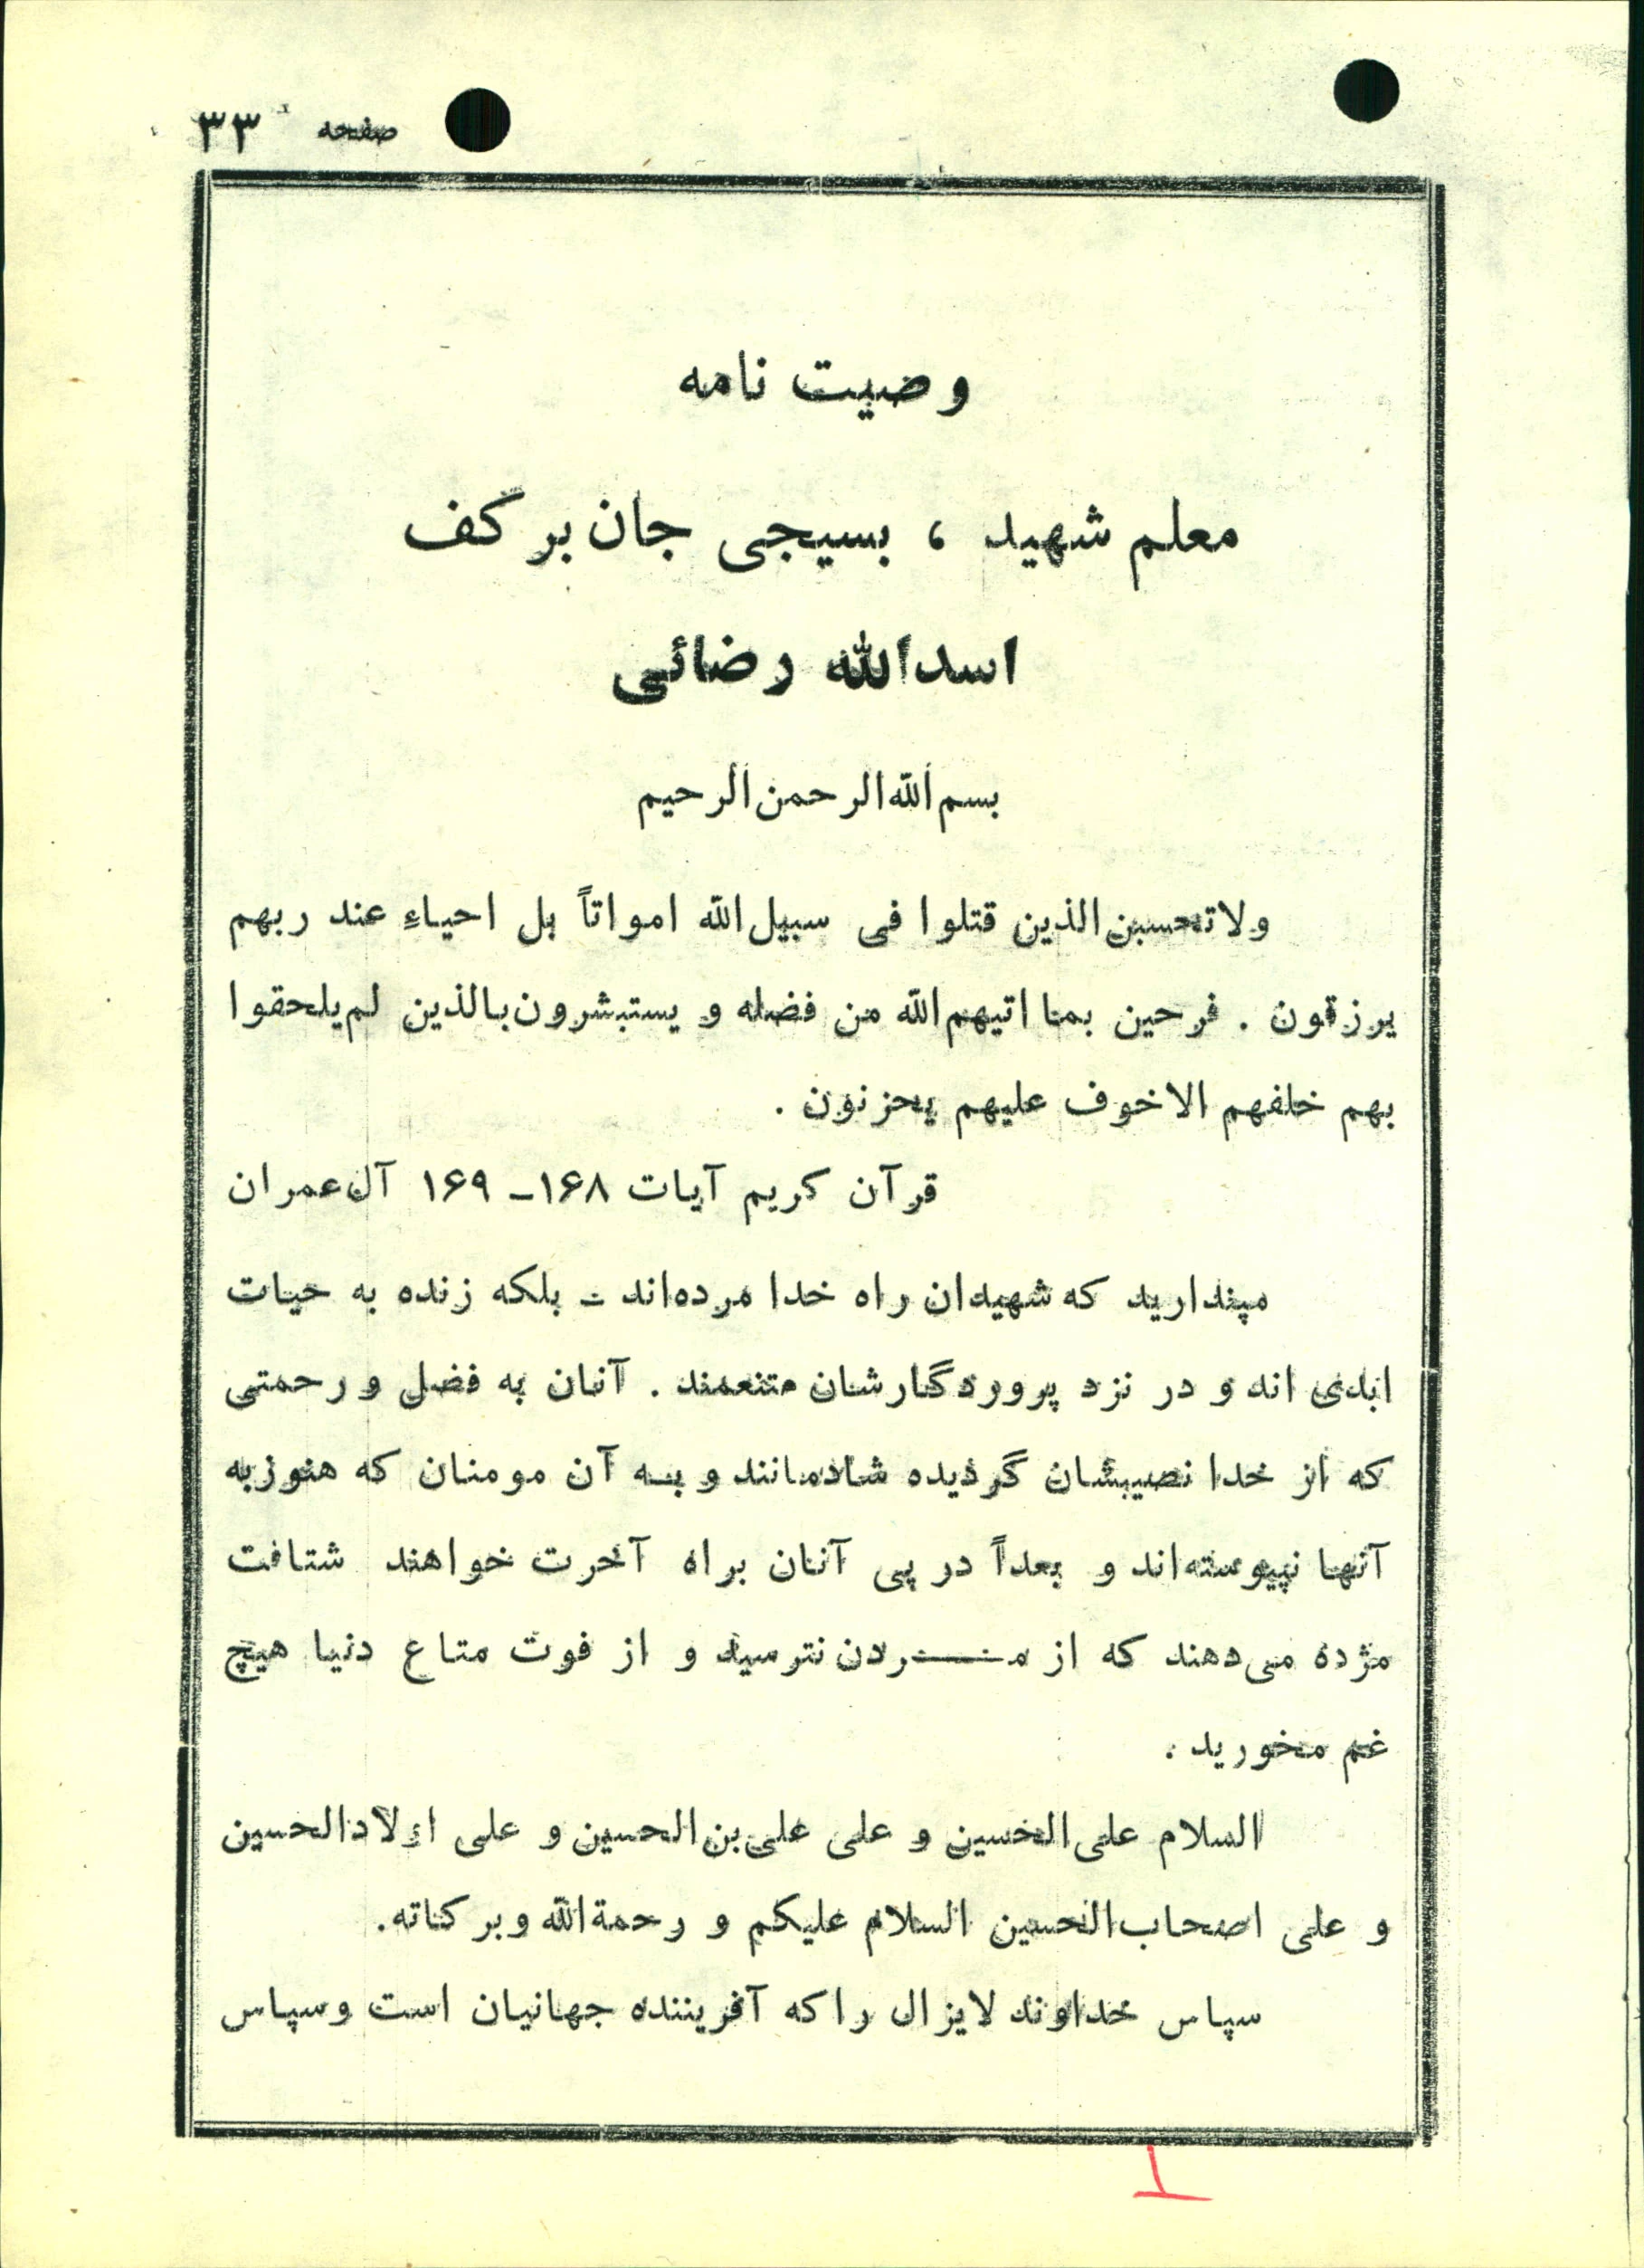 صفحه ۳۳
وصیت نامه
معلم شهید ، بسیجی جان بر کف
اسدالله رضائی
بسم الله الرحمن الرحیم
ولا تحسبن الذین قتلوا فی سبیل الله امواتاً بل احیاءِ عند ربهم
یرزقون . فرحین بما اتیهم الله من فضله و یستبشرون بالذین لم یلحقوا
بهم خلفهم الاخوف علیهم یحزنون .
قرآن کریم آیات ۱۶۸ـ ۱۶۹ آل عمران
مپندارید که شهیدان راه خدا مرده‌اند ـ بلکه زنده به حیات
ابدی اند و در نزد پروردگارشان متنعمند . آنان به فضل و رحمتی
که از خدا نصیبشان گردیده شادمانند و به آن مومنان که هنوز به
آنها نپیوسته‌اند و بعداً در پی آنان براه آخرت خواهند شتافت
مژده می‌دهند که از مردن نترسید و از فوت متاع دنیا هیچ
غم مخورید .
السلام علی الحسین و علی علی بن الحسین و علی اولاد الحسین
و علی اصحاب الحسین السلام علیکم و رحمة الله و برکاته.
سپاس خداوند لایزال را که آفریننده جهانیان است و سپاس